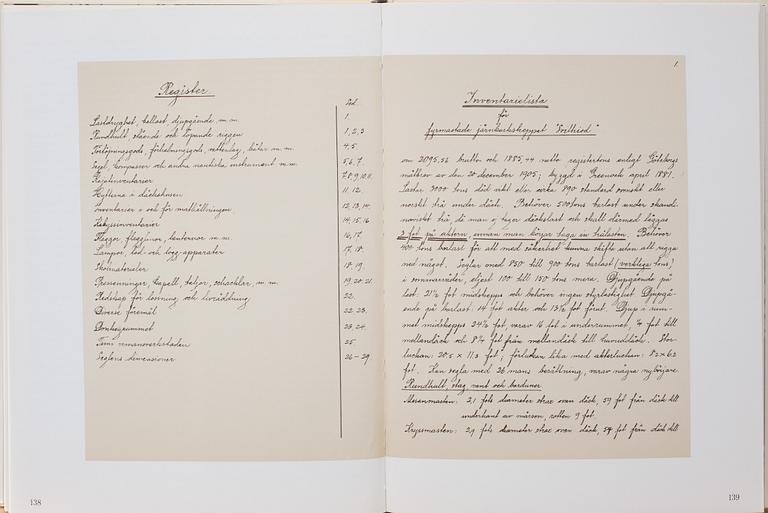 Register
Sid.
Lastdryghet, ballast djupgående m. m. 1.
Rundhult, stående och löpande riggen 1, 2, 3
Förtöjningsgods, förhalningsgods, vattenlag, båtar m. m. 4, 5
Segel, kompasser och andra nautiska instrument m. m. 5, 6, 7
inventarier 7, 8, 9, 10, 11.
Hytterna å däckshusen 11, 12.
Inventarier i och för mathållningen 12, 13, 14
inventarier 14, 15, 16
Flaggor, flagglinor, lanternor m. m. 16, 17
Lampor, lod- och logg-apparater 17, 18.
Skolmaterialer 18, 19
Presenningar, kapell, taljor, schacklar, m. m. 19, 20, 21
Redskap för lossning och livräddning 22.
Diverse föremål 22, 23.
Domkegrummet 23, 24.
Timmermansverkstaden 25
Seglens dimensioner 26 – 29
138
1.
Inventarielista
för
fyrmastade järnbarkskeppet "Fortheod"
om 2095,52 brutto och 1885,44 netto registertons enligt Göteborgs
mätbrev av den 20 december 1905; byggd i Greenock april 1881.
Lastar 3000 tons död vikt eller cirka 890 standard svenskt eller
norskt trä under däck. Behöver 500 tons barlast under skandi-
naviskt trä, då man ej tager däckslast och skall därmed läggas
2 fot på aktern, innan man börjar taga in trälasten. Behöver
400 tons barlast för att med säkerhet kunna skifta utan att rigga
ned något. Seglar med 850 till 900 tons barlast (verkliga tons)
i sommarväder, eljest 100 till 150 tons mera. Djupgående på
last: 21½ fot midskepps och behöver ingen styrlastighet. Djupgå-
ende på barlast: 14 fot akter och 13½ fot förut. Djup i rum-
met midskepps 24½ fot, varav 16 fot i underrummet, fot till
mellandäck och 8¾ fot från mellandäck till huvuddäck. Stor-
luckan: 20,5 x 11,3 fot; förluckan lika med akterluckan: 8,2 x 6,2
fot. Kan segla med 26 mans besättning, varav några nybörjare.
Rundhult, stag, vant och barduner
Mesanmasten: 2,1 fots diameter strax ovan däck, 59 fot från däck till
underkant av märsen, rotten 9 fot.
Kryssmasten: 2,9 fots diameter strax ovan däck, 54 fot från däck till
139